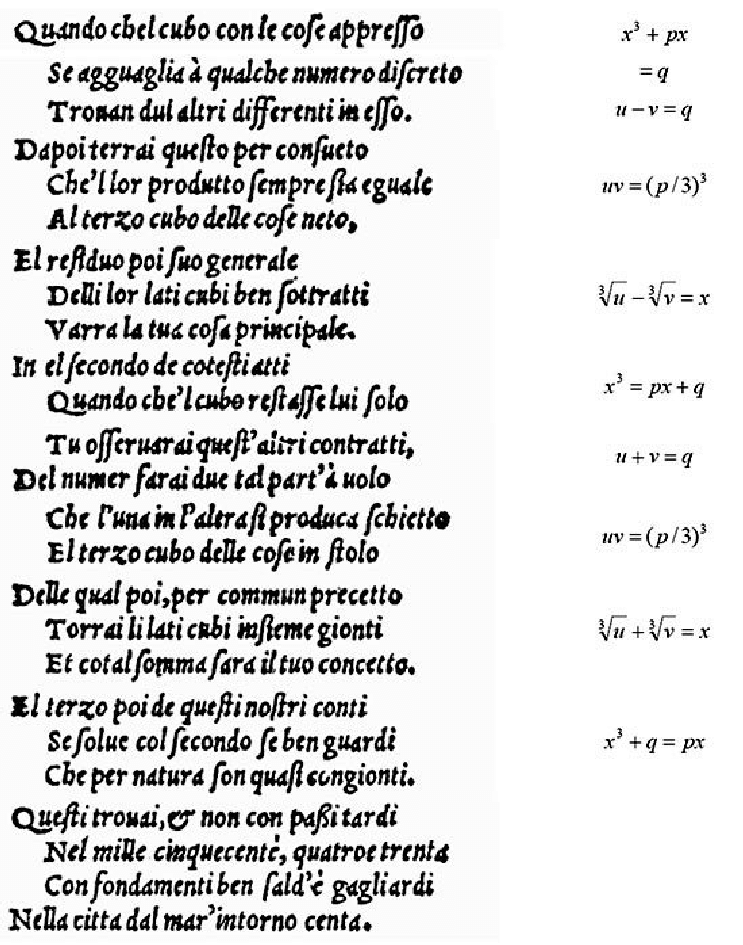 Quando chel cubo con le coſe appreſſo
Se agguaglia à qualche numero diſcreto
Trouan dui altri differenti in eſſo.
Dapoi terrai queſto per conſueto
Che'l lor produtto ſempre ſia eguale
Al terzo cubo delle coſe neto,
El reſiduo poi ſuo generale
Delli lor lati cubi ben ſottratti
Varra la tua coſa principale.
In el ſecondo de coteſti atti
Quando che'l cubo reſtaſſe lui ſolo
Tu oſſeruarai queſt'altri contratti,
Del numer farai due tal part'à uolo
Che l'una in l'altra ſi produca ſchietto
El terzo cubo delle coſe in ſtolo
Delle qual poi, per commun precetto
Torrai li lati cubi inſieme gionti
Et cotal ſomma ſara il tuo concetto.
El terzo poi de queſti noſtri conti
Se ſolue col ſecondo ſe ben guardi
Che per natura ſon quaſi congionti.
Queſti trouai, & non con paßi tardi
Nel mille cinquecentè, quatroe trenta
Con fondamenti ben ſald'è gagliardi
Nella citta dal mar'intorno centa.
x³ + px
= q
u − v = q
uv = (p/3)³
∛u − ∛v = x
x³ = px + q
u + v = q
uv = (p/3)³
∛u + ∛v = x
x³ + q = px